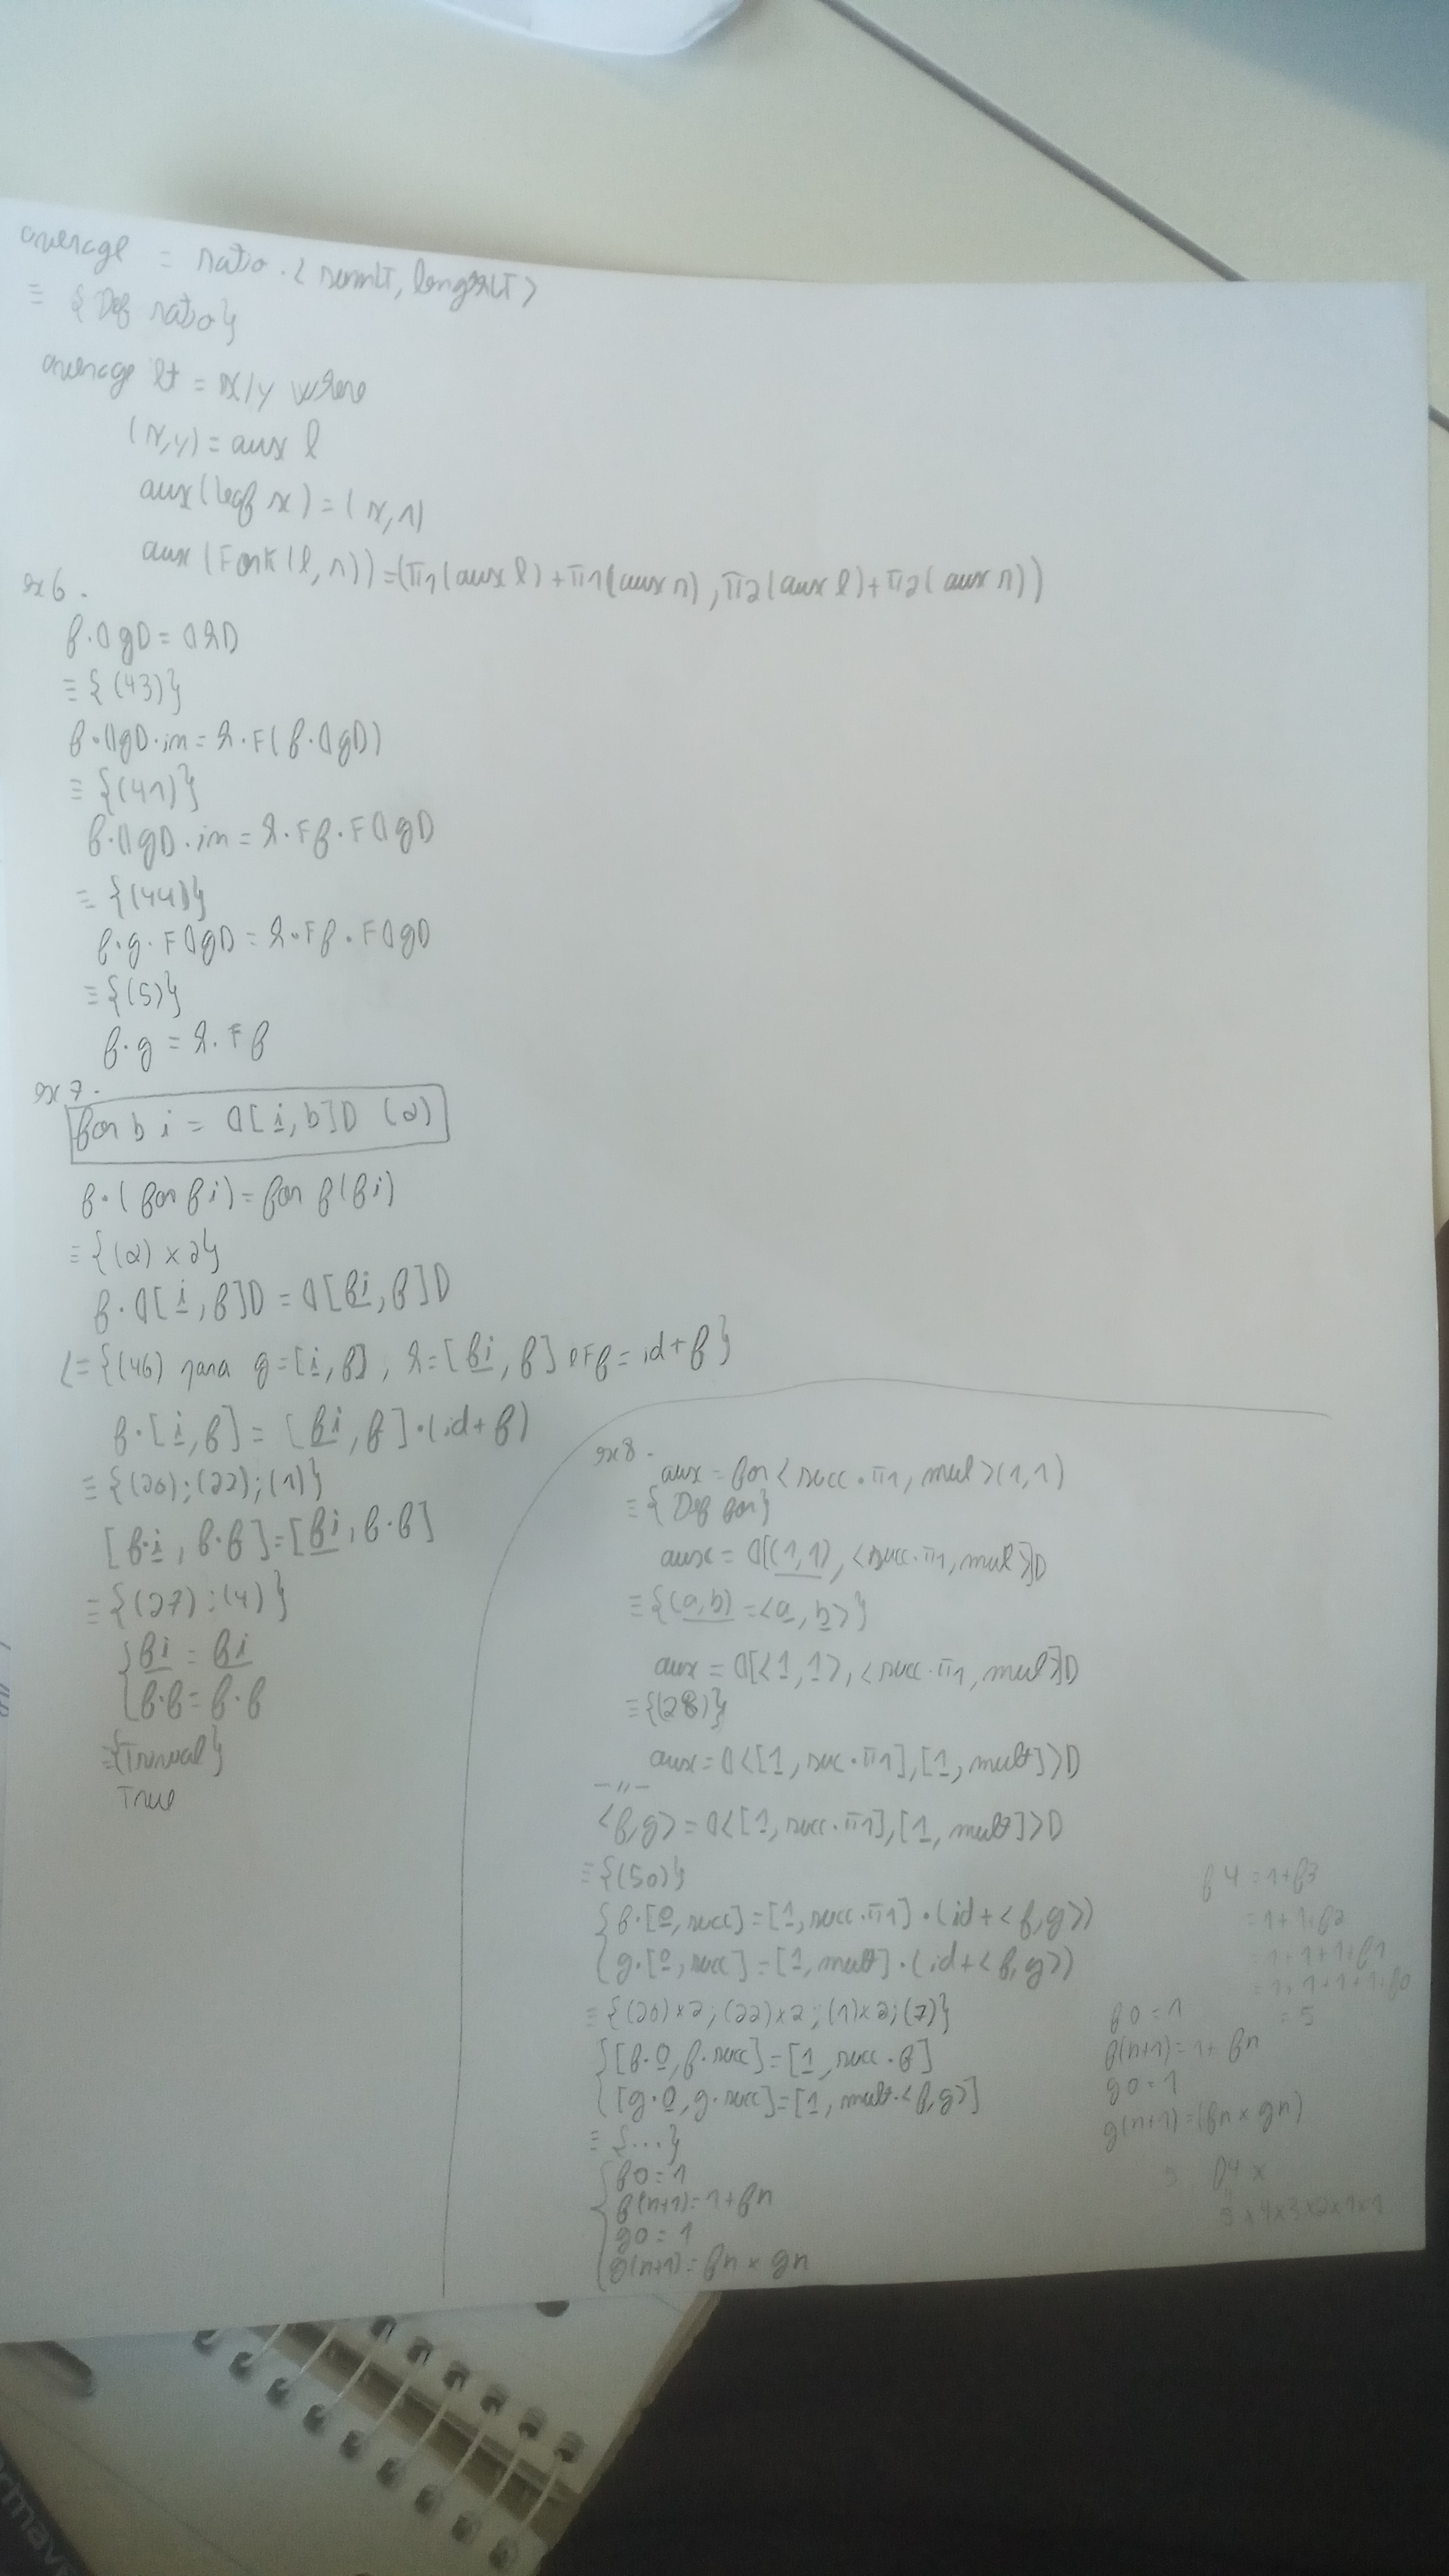 average = ratio . < sumLT, lengthLT >
≡ {Def ratio}
average lt = x/y where
(x,y) = aux l
aux (leaf x) = (x,1)
aux (Fork (l, r)) = (π1(aux l) + π1(aux r), π2(aux l) + π2(aux r))
ex 6.
f·⦇g⦈ = ⦇h⦈
≡ {(43)}
f·⦇g⦈·in = h·F(f·⦇g⦈)
≡ {(41)}
f·⦇g⦈·in = h·Ff·F⦇g⦈
≡ {(44)}
f·g·F⦇g⦈ = h·Ff·F⦇g⦈
≡ {(5)}
f·g = h·Ff
ex 7.
for b i = ⦇[i̲, b]⦈ (2)
f·(for f i) = for f (f i)
≡ {(2) x 2}
f·⦇[i̲, f]⦈ = ⦇[f̲i̲, f]⦈
<= {(46) para g = [i̲, f], h = [f̲i̲, f] e Ff = id + f}
f·[i̲, f] = [f̲i̲, f]·(id + f)
≡ {(20); (22); (1)}
[f·i̲, f·f] = [f̲i̲, f·f]
≡ {(27); (4)}
{ f̲i̲ = f̲i̲
{ f·f = f·f
≡ {Trivial}
True
ex 8.
aux = for <succ·π1, mul> (1,1)
≡ {Def for}
aux = ⦇[(̲1̲,̲1̲)̲, <succ·π1, mul>]⦈
≡ {(̲a̲,̲b̲)̲ = <a̲, b̲>}
aux = ⦇[<1̲, 1̲>, <succ·π1, mul>]⦈
≡ {(28)}
aux = ⦇<[1̲, suc·π1], [1̲, mult]>⦈
-"-
<f,g> = ⦇<[1̲, succ·π1], [1̲, mult]>⦈
≡ {(50)}
{ f·[0̲, succ] = [1̲, succ·π1]·(id + <f,g>)
{ g·[0̲, succ] = [1̲, mult]·(id + <f,g>)
≡ {(20)x2; (22)x2; (1)x2; (7)}
{ [f·0̲, f·succ] = [1̲, succ·f]
{ [g·0̲, g·succ] = [1̲, mult·<f,g>]
≡ {...}
{ f0 = 1
f(n+1) = 1 + fn
g0 = 1
g(n+1) = fn x gn
f 4 = 1 + f3
= 1 + 1 + f2
= 1 + 1 + 1 + f1
= 1 + 1 + 1 + 1 + f0
= 5
f0 = 1
f(n+1) = 1 + fn
g0 = 1
g(n+1) = (fn x gn)
5 f4 x
5 x 4 x 3 x 2 x 1 x 1